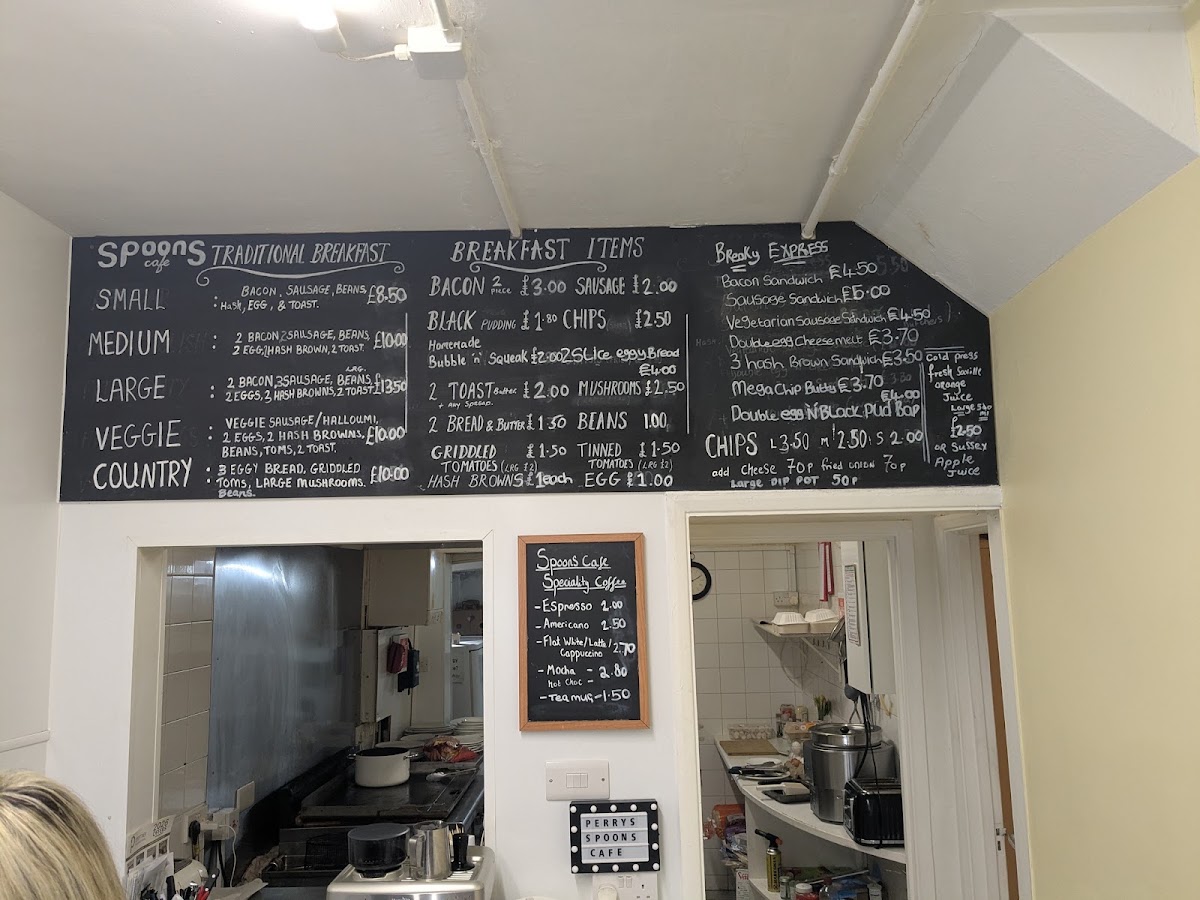 SPOONS
cafe
TRADITIONAL BREAKFAST
SMALL : BACON, SAUSAGE, BEANS, £8.50
Hash, EGG, & TOAST.
MEDIUM : 2 BACON 2 SAUSAGE, BEANS, £10.00
2 EGG, 2 HASH BROWN, 2 TOAST.
LARGE : 2 BACON, 3 SAUSAGE, LRG. BEANS, £13.50
2 EGGS, 3 HASH BROWNS, 2 TOAST
VEGGIE : VEGGIE SAUSAGE/HALLOUMI, £10.00
2 EGGS, 2 HASH BROWNS,
BEANS, TOMS, 2 TOAST.
COUNTRY : 3 EGGY BREAD, GRIDDLED £10.00
TOMS, LARGE MUSHROOMS.
Beans.
BREAKFAST ITEMS
BACON 2 piece £3.00 SAUSAGE £2.00
BLACK PUDDING £1.80 CHIPS £2.50
Homemade
Bubble 'n' Squeak £2.00 2 SLice eggy Bread
£4.00
2 TOAST Butter £2.00 MUSHROOMS £2.50
+ ANY SPREAD.
2 BREAD & BUTTER £1.30 BEANS 1.00
GRIDDLED £1.50 TINNED £1.50
TOMATOES (LRG £2) TOMATOES (LRG £2)
HASH BROWNS £1 each EGG £1.00
Breaky EXPRESS
Bacon Sandwich £4.50
Sausage Sandwich £5.00
Vegetarian Sausage Sandwich £4.50
Double egg Cheese melt £3.70
3 hash Brown Sandwich £3.50
Mega Chip Butty £3.70
£4.00
Double egg N Black Pud Bap
CHIPS L 3.50 M 2.50 S 2.00
add cheese 70p fried onion 70p
Large DIP POT 50p
Cold press
fresh Saville
orange
Juice
Large 340
ml
£2.50
or Sussex
Apple
juice
Spoons Cafe
Speciality Coffee
- Espresso 2.00
- Americano 2.50
- Flat White/Latte/ 2.70
Cappuccino
- Mocha - 2.80
Hot Choc -
- Tea mug - 1.50
PERRYS
SPOONS
CAFE